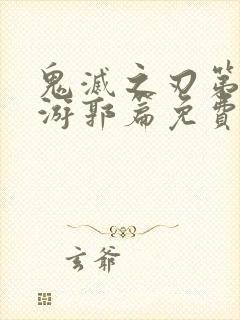 鬼滅之刃第
游郭篇免費
玄爺